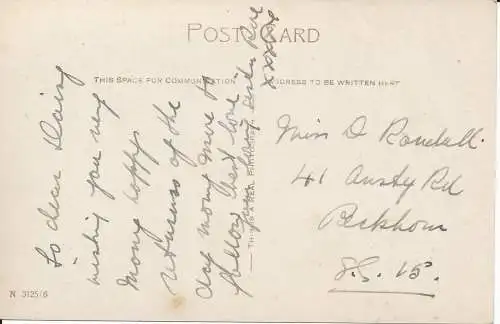 POST CARD
THIS SPACE FOR COMMUNICATION
ADDRESS TO BE WRITTEN HERE
To dear Daisy
wishing you very
many happy
returns of the
day many more to
follow best love
from
xxxxxx
THIS IS A REAL PHOTOGRAPH
Miss D Randall
41 Rd
Peckham
S.E. 15.
N 3125/6